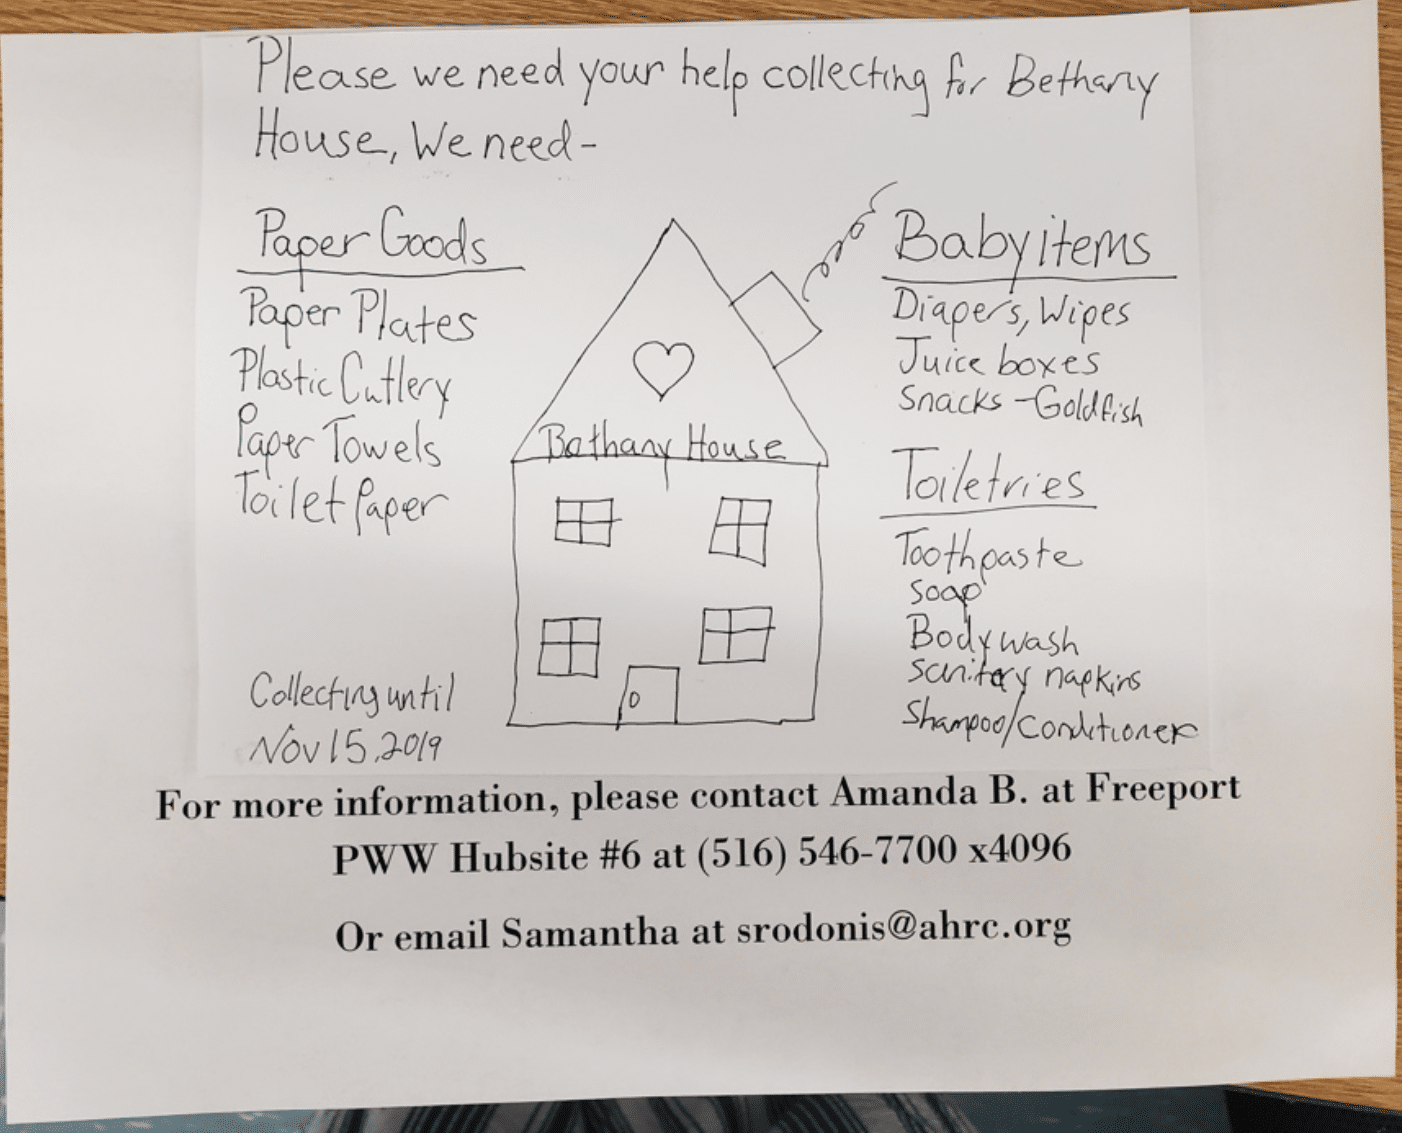 Please we need your help collecting for Bethany
House, We need-
Paper Goods
Paper Plates
Plastic Cutlery
Paper Towels
Toilet Paper
Collecting until
Nov 15, 2019
Bethany House
Baby items
Diapers, Wipes
Juice boxes
Snacks - Goldfish
Toiletries
Toothpaste
Soap
Body wash
Sanitary napkins
Shampoo/Conditioner
For more information, please contact Amanda B. at Freeport
PWW Hubsite #6 at (516) 546-7700 x4096
Or email Samantha at srodonis@ahrc.org